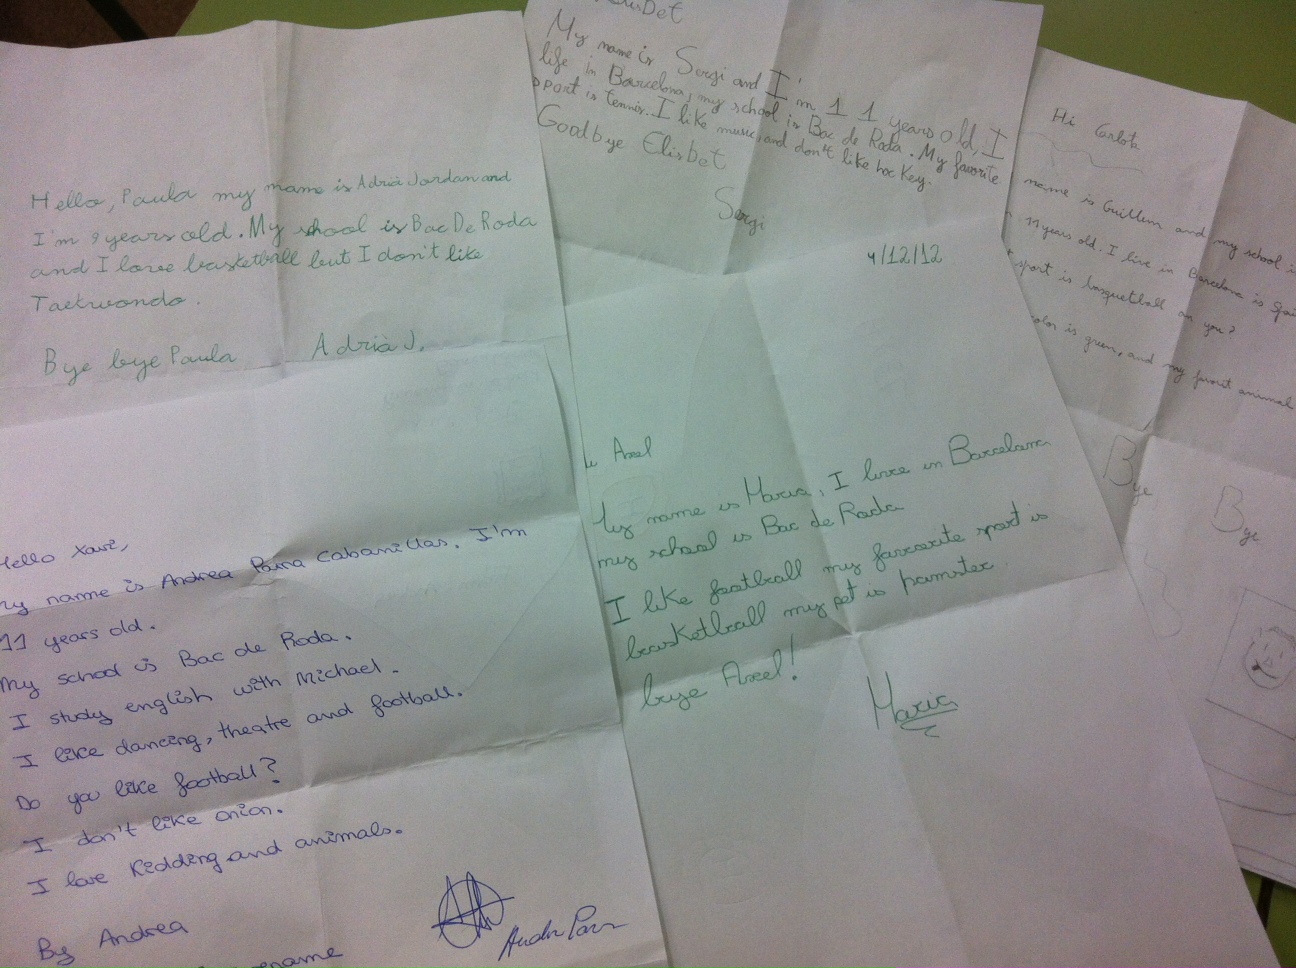 Hello, Paula my name is Adrià Jordan and
I'm 9 years old. My school is Bac De Roda
and I love basketball but I don't like
Taekwondo.
Bye bye Paula Adrià J.
Elisbet
My name is Sergi and I'm 11 years old, I
life in Barcelona, my school is Bac de Roda. My favorite
sport is tennis. I like music, and don't like hockey.
Goodbye Elisbet
Sergi
Hi Carlota
name is Guillem and my school is
11 years old. I live in Barcelona is Spai
sport is basquetball an you?
color is green, and my favorit animal
Bye Bye
Hello Xavi,
My name is Andrea Parra Cabanillas. I'm
11 years old.
My school is Bac de Roda.
I study english with Michael.
I like dancing, theatre and football.
Do you like football?
I don't like onion.
I love Kidding and animals.
By Andrea
ename
4/12/12
Axel
My name is Maria, I live in Barcelona
my school is Bac de Roda
I like football my favourite sport is
basketball my pet is hamster.
bye Axel!
Maria